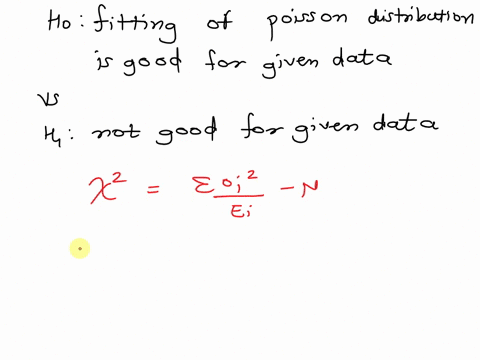 Ho: fitting of poisson distribution
is good for given data
vs
H₁: not good for given data
χ² = Σ oᵢ²/Eᵢ - N